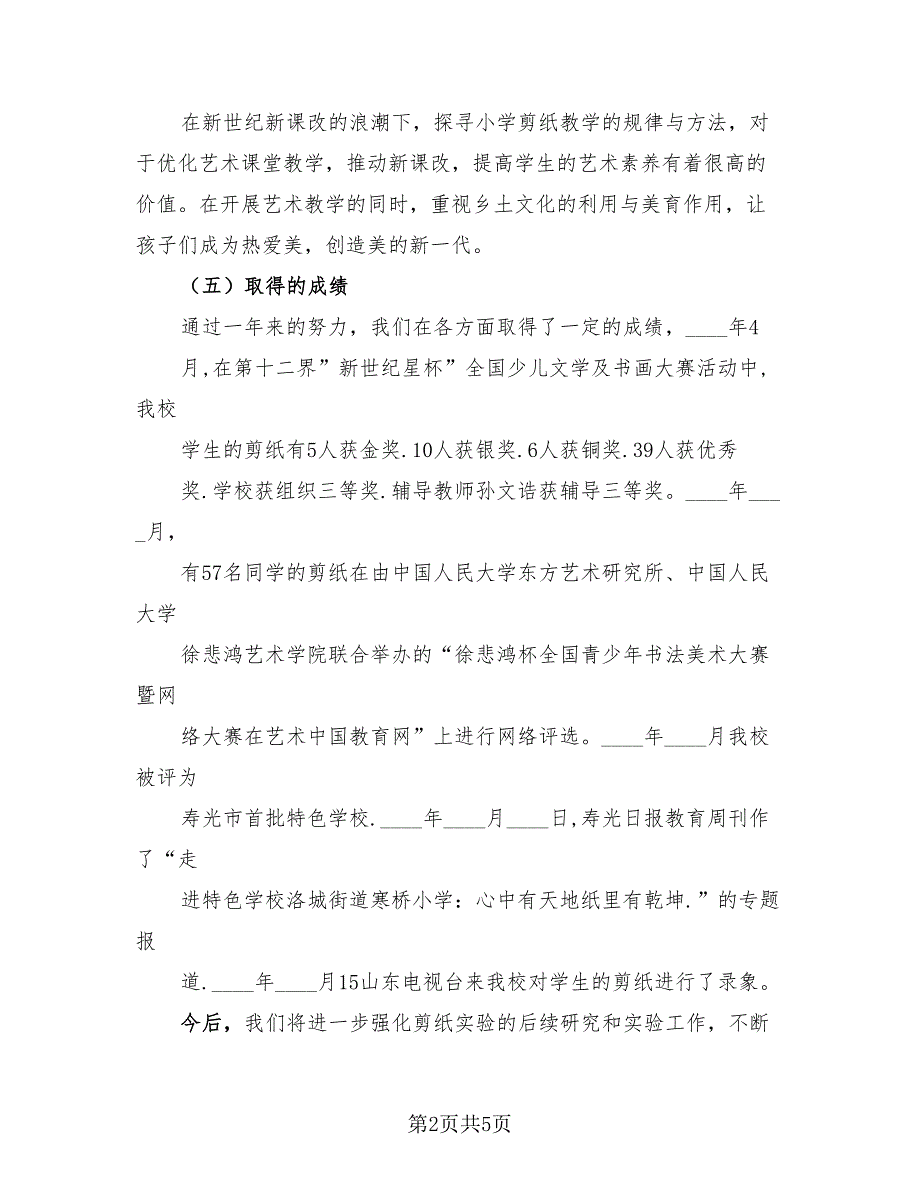 在新世纪新课改的浪潮下，探寻小学剪纸教学的规律与方法，对
于优化艺术课堂教学，推动新课改，提高学生的艺术素养有着很高的
价值。在开展艺术教学的同时，重视乡土文化的利用与美育作用，让
孩子们成为热爱美，创造美的新一代。
（五）取得的成绩
通过一年来的努力，我们在各方面取得了一定的成绩，____年4
月,在第十二界”新世纪星杯”全国少儿文学及书画大赛活动中,
我校
学生的剪纸有5人获金奖.10人获银奖.6人获铜奖.39人获优秀
奖.学校获组织三等奖.辅导教师孙文诰获辅导三等奖。____年___
_月，
有57名同学的剪纸在由中国人民大学东方艺术研究所、中国人民
大学
徐悲鸿艺术学院联合举办的“徐悲鸿杯全国青少年书法美术大赛
暨网
络大赛在艺术中国教育网”上进行网络评选。____年____月我校
被评为
寿光市首批特色学校.____年____月____日,寿光日报教育周刊作
了“走
进特色学校洛城街道寒桥小学：心中有天地纸里有乾坤.”的专题
报
道.____年____月15山东电视台来我校对学生的剪纸进行了录象。
今后，我们将进一步强化剪纸实验的后续研究和实验工作，不断
第2页共5页